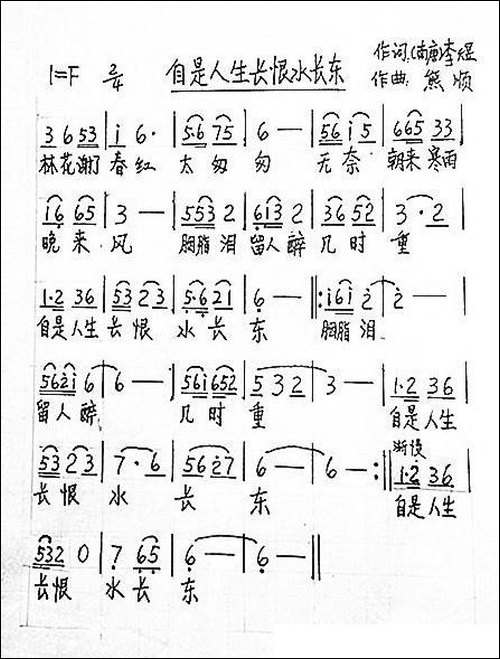 自是人生长恨水长东
作词:(南唐)李煜
1=F 2/4
作曲: 熊顺
3 6 53 | i 6· | 5·6 75 | 6 — | 56 i 5 | 665 33 |
林花谢了 春红 太匆 匆 无奈 朝来寒雨
i6 65 | 3 — | 553 2 | 613 2 | 36 52 | 3·2 |
晚来 风 胭脂泪 留人醉 几时 重
1·2 36 | 53 23 | 5·6 21 | 6 — ‖: i6i 2 | 2 — |
自是人生 长恨 水长 东 胭脂泪
562i 6 | 6 — | 56i 652 | 5 32 | 3 — | 1·2 36 |
留人醉 几时 重 自是人生
渐慢
53 23 | 7·6 | 56 27 | 6 — | 6 — :‖ 1·2 36 |
长恨 水 长 东 自是人生
532 0 | 7 65 | 6 — | 6 — ‖
长恨 水长 东